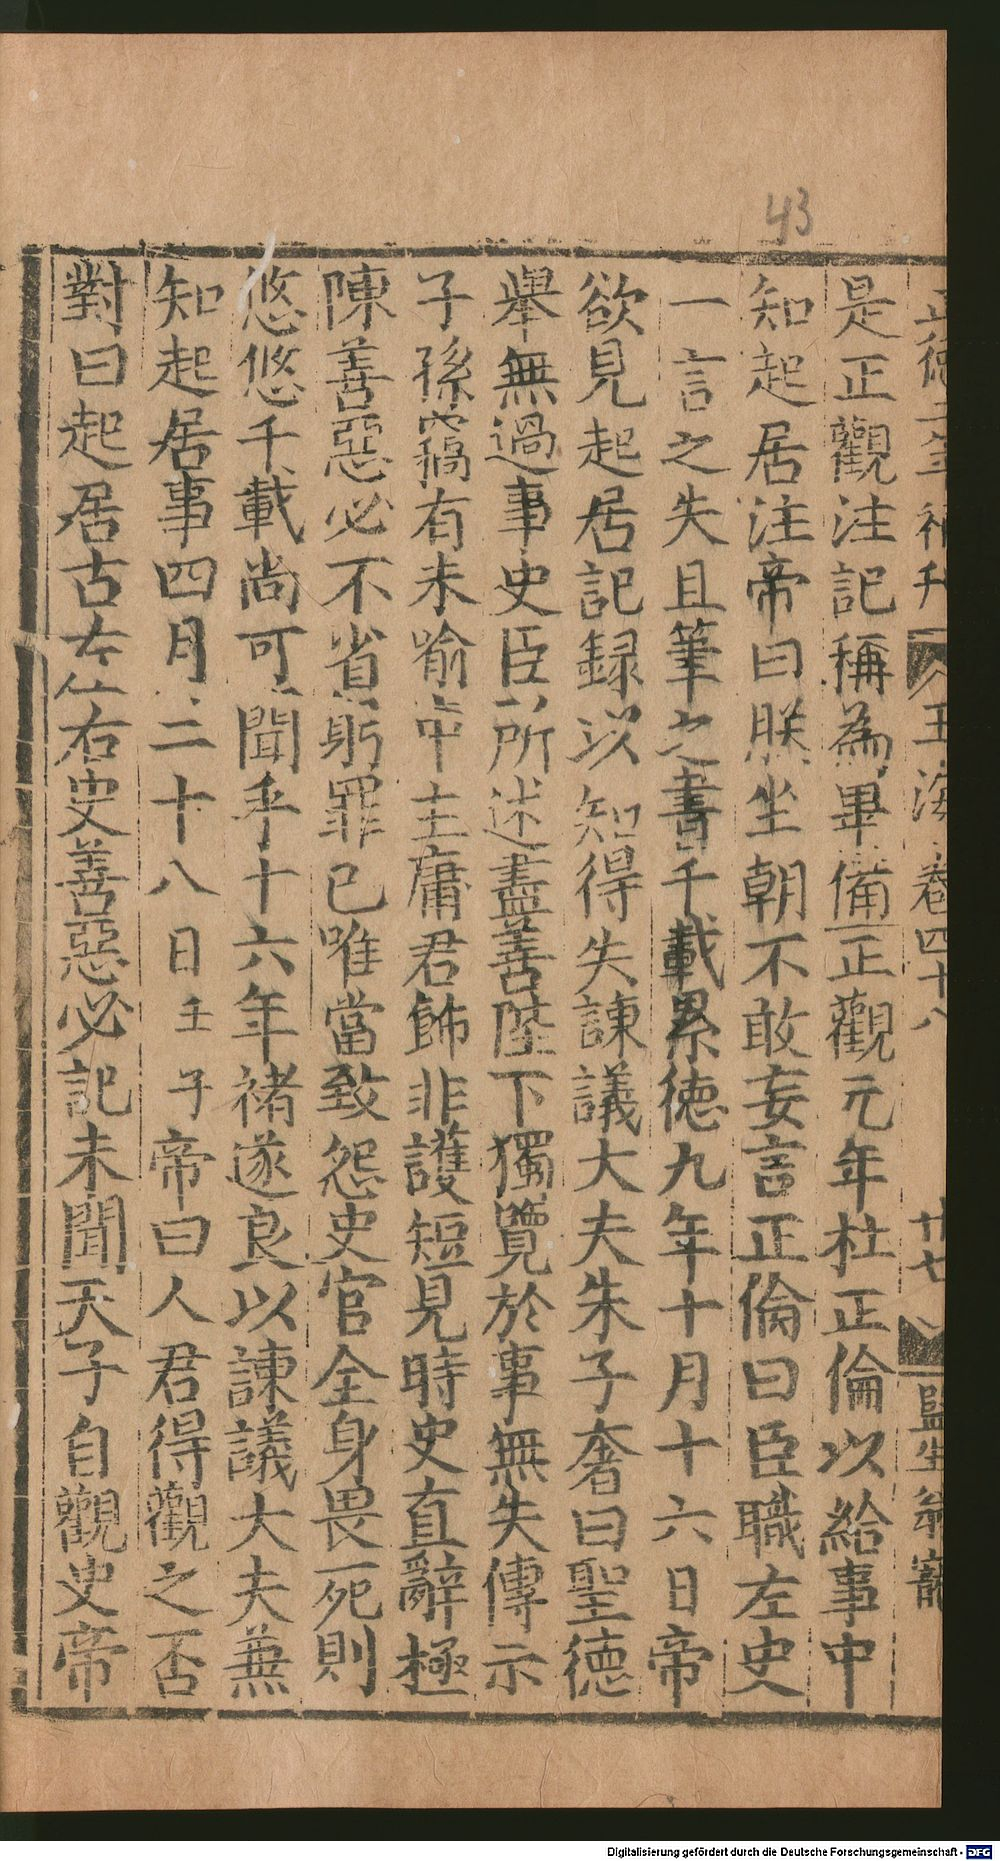 43
正德二年補刊 玉海卷四十八 廿七 監生翁寵
是正觀注記稱為畢備正觀元年杜正倫以給事中
知起居注帝曰朕坐朝不敢妄言正倫曰臣職左史
一言之失且筆之書千載累德九年十月十六日帝
欲見起居記録以知得失諫議大夫朱子奢曰聖德
舉無過事史臣所述盡善陛下獨覽於事無失傳示
子孫竊有未喻中主庸君飾非護短見時史直辭極
陳善惡必不省躬罪已唯當致怨史官全身畏死則
悠悠千載尚可聞乎十六年褚遂良以諫議大夫兼
知起居事四月二十八日壬子帝曰人君得觀之否
對曰起居古左右史善惡必記未聞天子自觀史帝
Digitalisierung gefördert durch die Deutsche Forschungsgemeinschaft - DFG